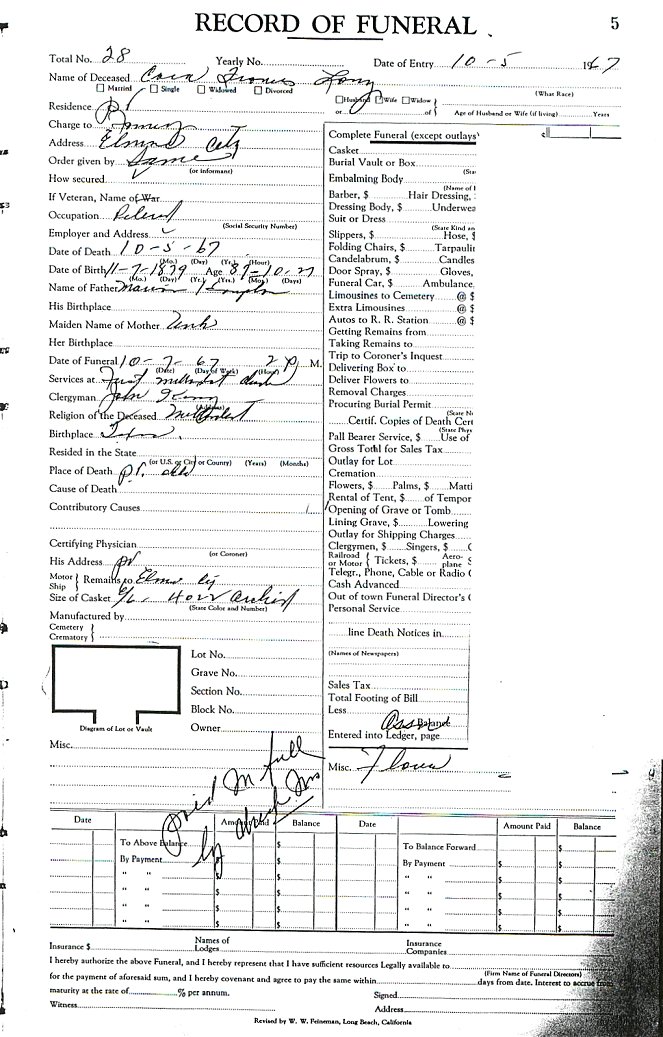 RECORD OF FUNERAL 5
Total No. 28 Yearly No. Date of Entry 10-5 1967
Name of Deceased Cora Long
Married Single Widowed Divorced
Husband Wife Widow (What Race)
or of Age of Husband or Wife (if living) Years
Residence
Charge to
Address Elmer City
Order given by Same
(or informant)
How secured
If Veteran, Name of War
Occupation Retired
(Social Security Number)
Employer and Address
Date of Death 10-5-67
(Mo.) (Day) (Yr.) (Hour)
Date of Birth 11-7-1879 Age 87-10-
(Mo.) (Day) (Yr.) (Yrs.) (Mos.) (Days)
Name of Father Marion
His Birthplace
Maiden Name of Mother Unk
Her Birthplace
Date of Funeral 10-7-67 2 P. M.
(Date) (Day of Week) (Hour)
Services at First Methodist church
(Address)
Clergyman John
Religion of the Deceased Methodist
Birthplace
Resided in the State
(or U.S. City or County) (Years) (Months)
Place of Death
Cause of Death
Contributory Causes
Certifying Physician
(or Coroner)
His Address
Motor Ship Remains to Elmer City
Size of Casket
(State Color and Number)
Manufactured by
Cemetery
Crematory
Lot No.
Grave No.
Section No.
Block No.
Owner
Diagram of Lot or Vault
Misc.
Paid In full
by
Complete Funeral (except outlays)
Casket
Burial Vault or Box
(Sta
Embalming Body
(Name of
Barber, $ Hair Dressing,
Dressing Body, $ Underwea
Suit or Dress
(State Kind an
Slippers, $ Hose, $
Folding Chairs, $ Tarpauli
Candelabrum, $ Candles
Door Spray, $ Gloves,
Funeral Car, $ Ambulance
Limousines to Cemetery @ $
Extra Limousines @ $
Autos to R. R. Station @ $
Getting Remains from
Taking Remains to
Trip to Coroner's Inquest
Delivering Box to
Deliver Flowers to
Removal Charges
Procuring Burial Permit
(State N
Certif. Copies of Death Cert
(State Phys
Pall Bearer Service, $ Use of
Gross Total for Sales Tax
Outlay for Lot
Cremation
Flowers, $ Palms, $ Matti
Rental of Tent, $ of Tempor
Opening of Grave or Tomb
Lining Grave, $ Lowering
Outlay for Shipping Charges
Clergymen, $ Singers, $
Railroad or Motor Tickets, $ Aero-plane $
Telegr., Phone, Cable or Radio
Cash Advanced
Out of town Funeral Director's
Personal Service
line Death Notices in
(Names of Newspapers)
Sales Tax
Total Footing of Bill
Less
Balance
Entered into Ledger, page
Misc. Flowers
Date Amount Paid Balance Date Amount Paid Balance
To Above Balance $ To Balance Forward $
By Payment $ $ By Payment $ $
" " $ $ " " $ $
" " $ $ " " $ $
" " $ $ " " $ $
" " $ $ " " $ $
Insurance $ Names of Lodges Insurance Companies
I hereby authorize the above Funeral, and I hereby represent that I have sufficient resources Legally available to
(Firm Name of Funeral Directors)
for the payment of aforesaid sum, and I hereby covenant and agree to pay the same within days from date. Interest to accrue from
maturity at the rate of % per annum. Signed
Witness Address
Revised by W. W. Feineman, Long Beach, California